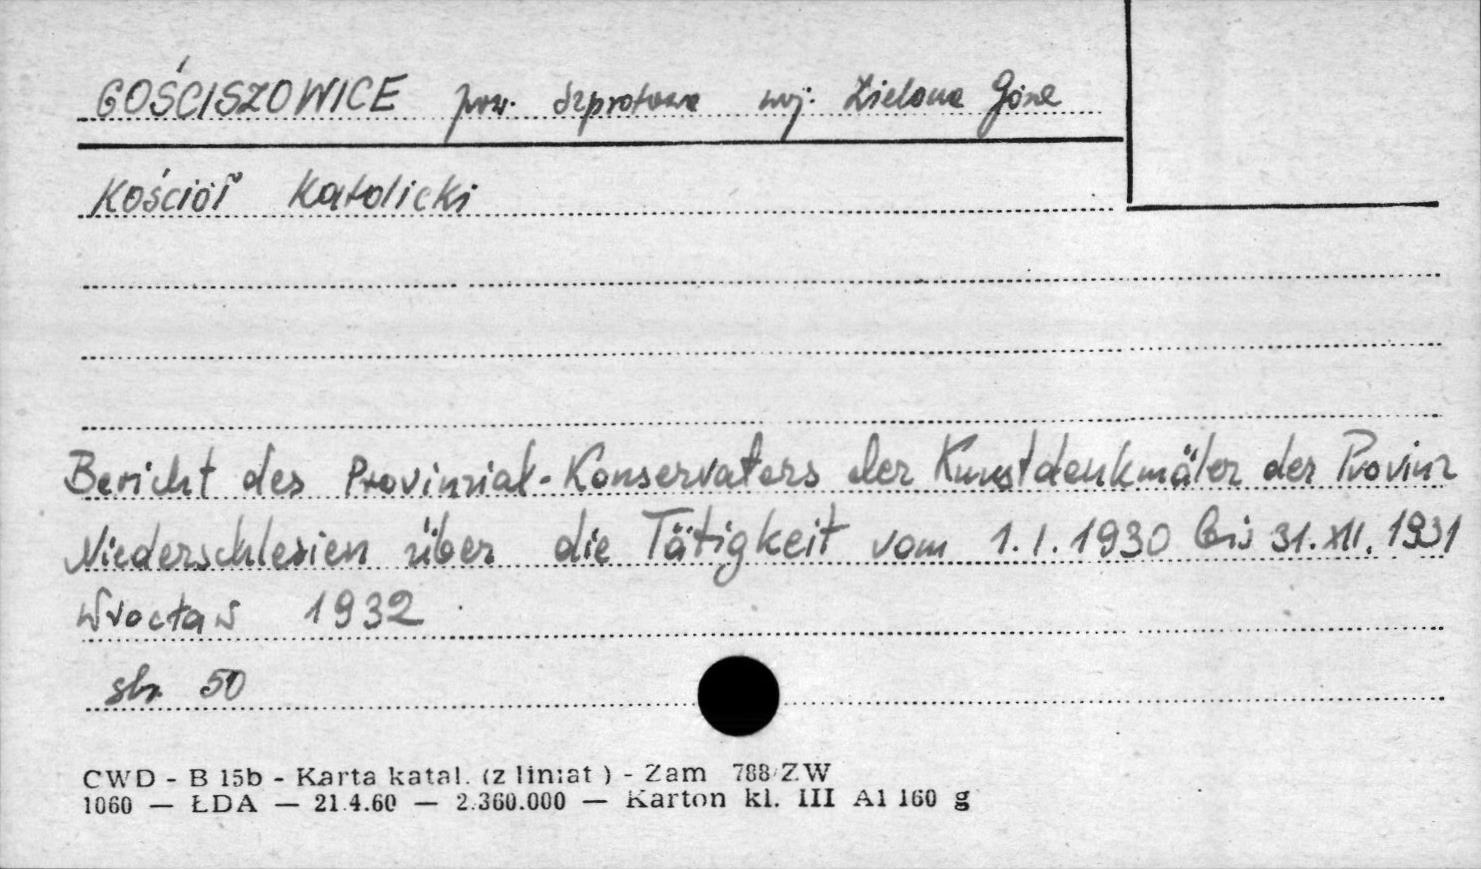 GOŚCISZOWICE pow. Szprotawa woj. Zielona Góra
Kościół Katolicki
Bericht des Provinzial-Konservators der Kunstdenkmäler der Provinz
Niederschlesien über die Tätigkeit vom 1.I.1930 bis 31.XII.1931
Wrocław 1932
str. 50
CWD - B 15b - Karta katal. (z liniat ) - Zam 788/ZW
1060 — ŁDA — 21.4.60 — 2.360.000 — Karton kl. III A1 160 g